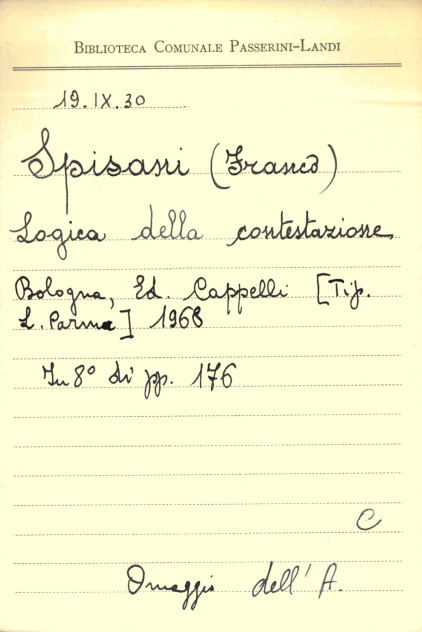 BIBLIOTECA COMUNALE PASSERINI-LANDI
19.IX.30
Spisani (Franco)
Logica della contestazione
Bologna, Ed. Cappelli [Tip.
L. Parma] 1968
In 8° di pp. 176
C
Omaggio dell'A.